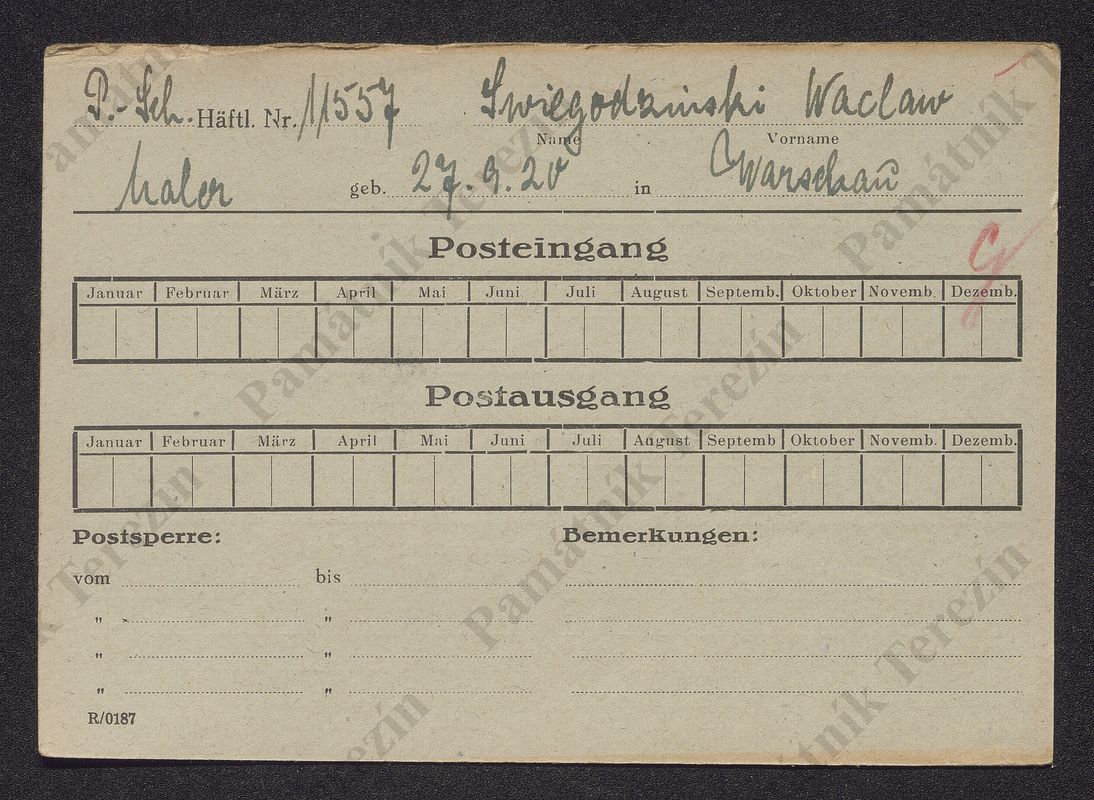 P.-Sch. Häftl. Nr. 11557 Swiegodzinski Waclaw
Name Vorname
Maler geb. 27.9.20 in Warschau
Posteingang
Januar Februar März April Mai Juni Juli August Septemb. Oktober Novemb. Dezemb.
Postausgang
Januar Februar März April Mai Juni Juli August Septemb Oktober Novemb. Dezemb.
Postsperre: Bemerkungen:
vom bis
" "
" "
" "
R/0187
Památník Terezín